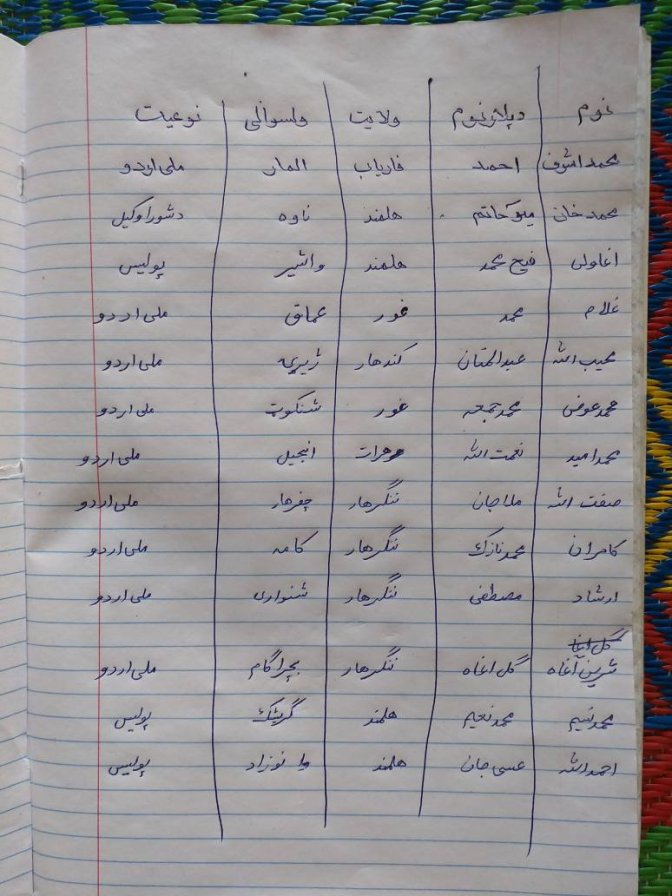 نوم دپلار نوم ولایت ولسوالي نوعیت
محمد اشرف احمد فاریاب المار ملی اردو
محمد خان حاتم هلمند ناوه دشورا وکیل
اغاولی فتح محمد هلمند واشیر پولیس
غلام محمد غور عماق ملی اردو
محیب الله عبدالمنان کندهار ژیړیه ملی اردو
محمد عوض محمد جمعه غور شنکوټ ملی اردو
محمد امید نعمت الله هرات انجیل ملی اردو
صفت الله ملا جان ننگرهار چفرهار ملی اردو
کامران محمد نازک ننگرهار کامه ملی اردو
ارشاد مصطفی ننگرهار شنواری ملی اردو
گل اغا
شرین آغاه گل اغاه ننگرهار بچراگام ملی اردو
محمد نسیم محمد نعیم هلمند گرشک پولیس
احمدالله عسی جان هلمند نوزاد پولیس